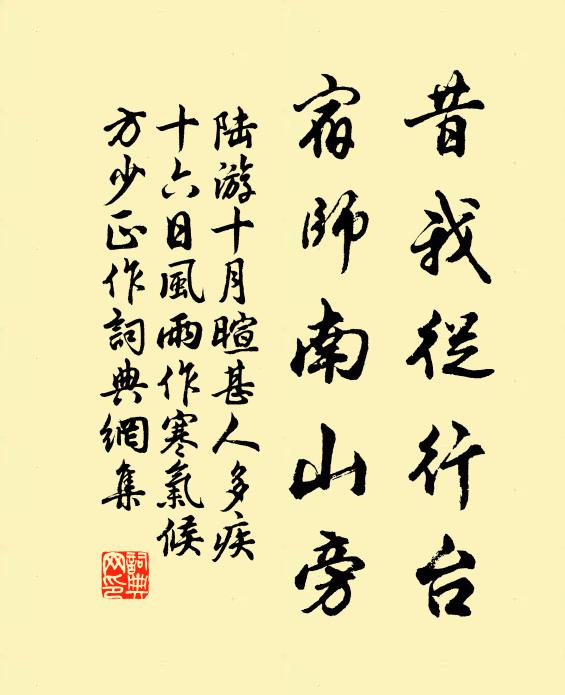 昔我從行台
宿師南山旁
陆游十月暄甚人多疾
十六日風雨作寒氣候
方少正作詞典網集
詞典網印